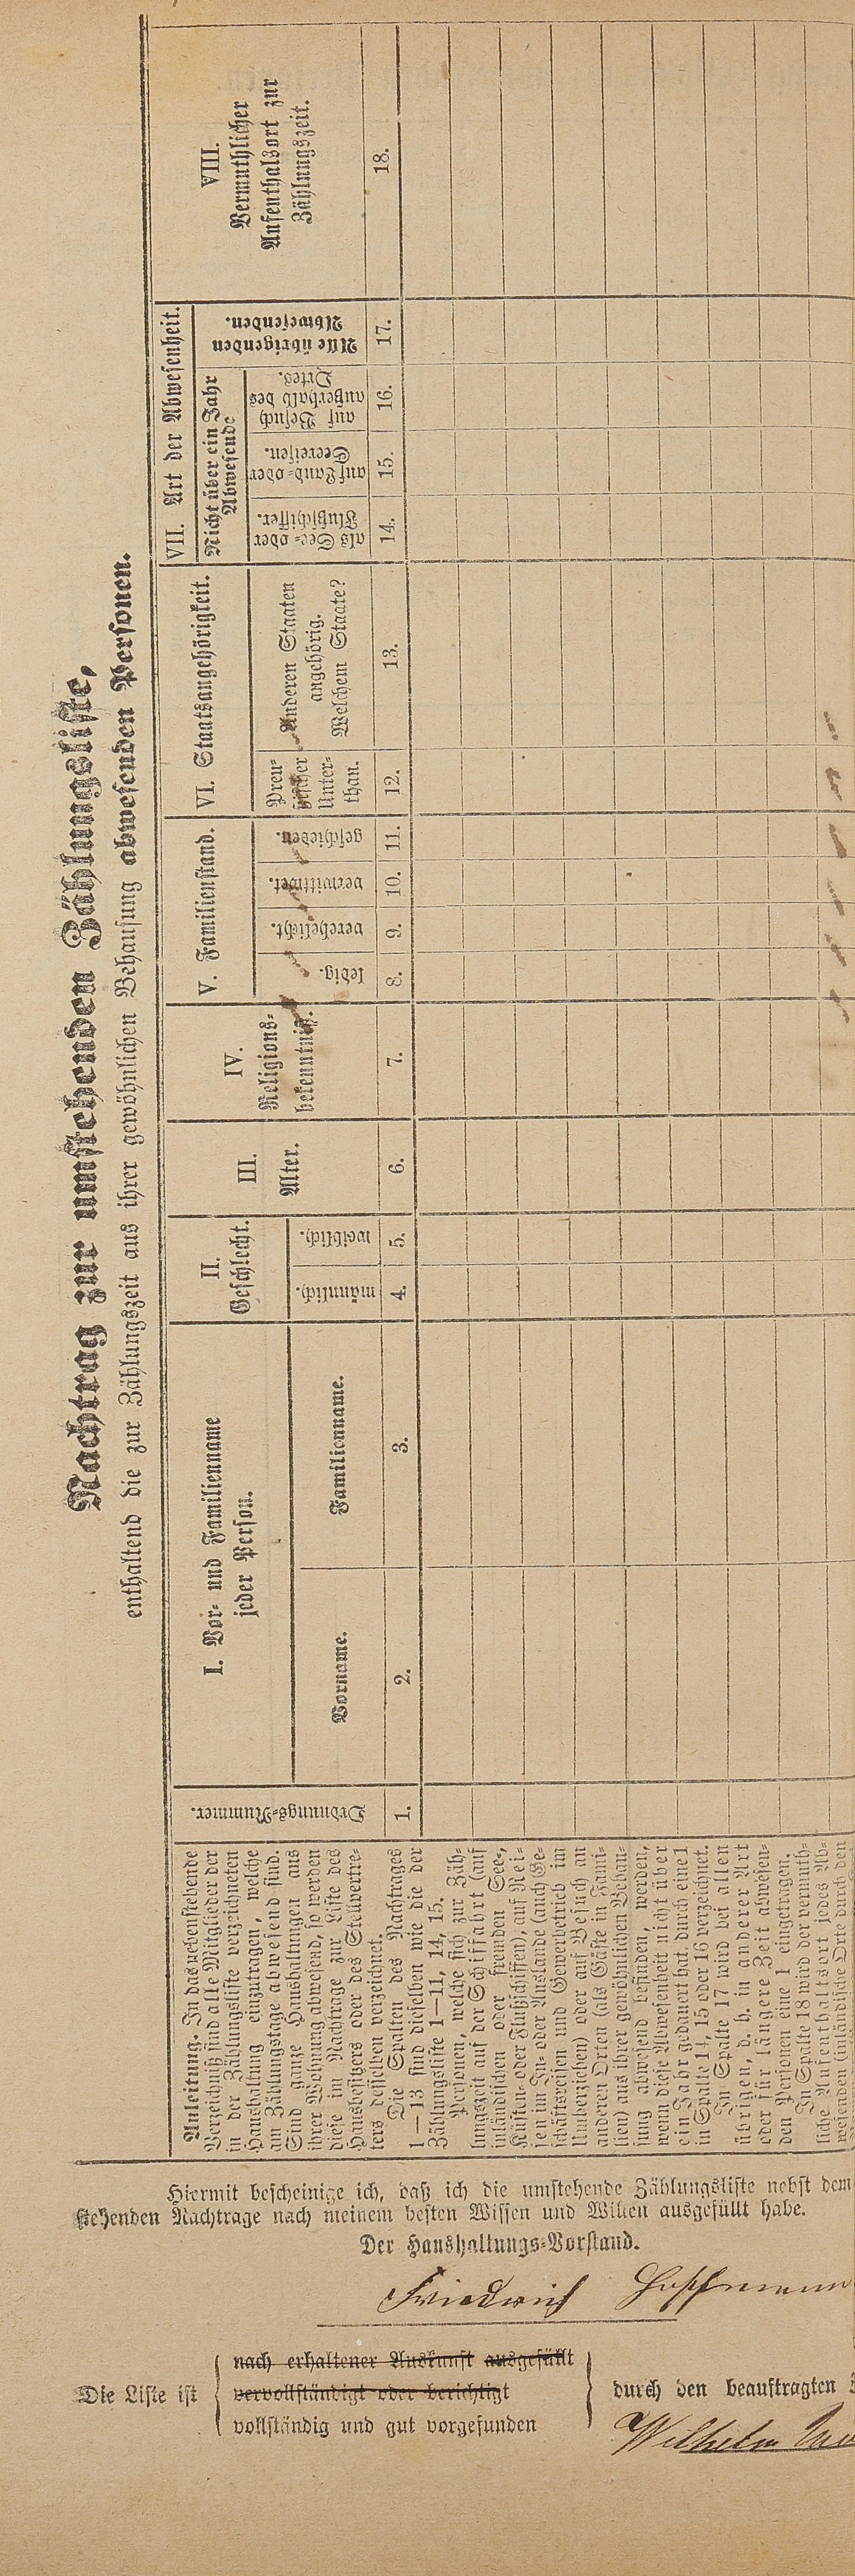 Nachtrag zur umstehenden Zählungsliste,
enthaltend die zur Zählungszeit aus ihrer gewöhnlichen Behausung abwesenden Personen.
Anleitung. In das nebenstehende
Verzeichniß sind alle Mitglieder der
in der Zählungsliste verzeichneten
Haushaltung einzutragen, welche
am Zählungstage abwesend sind.
Sind ganze Haushaltungen aus
ihrer Wohnung abwesend, so werden
diese im Nachtrage zur Liste des
Hausbesitzers oder des Stellvertre-
ters desselben verzeichnet.
Die Spalten des Nachtrages
1—13 sind dieselben wie die der
Zählungsliste 1—11, 14, 15.
Personen, welche sich zur Zäh-
lungszeit auf der Schiffahrt (auf
inländischen oder fremden See-,
Küsten- oder Flußschiffen), auf Rei-
sen im In- oder Auslande (auch Ge-
schäftsreisen und Gewerbetrieb im
Umherziehen) oder auf Besuch an
anderen Orten (als Gäste in Fami-
lien) aus ihrer gewöhnlichen Behau-
sung abwesend befinden, werden,
wenn diese Abwesenheit nicht über
ein Jahr gedauert hat, durch eine 1
in Spalte 14, 15 oder 16 verzeichnet.
In Spalte 17 wird bei allen
übrigen, d. h. in anderer Art
oder für längere Zeit abwesen-
den Personen eine 1 eingetragen.
In Spalte 18 wird der vermuth-
liche Aufenthaltsort jedes Ab-
wesenden (inländische Orte durch den
Ordnungs-Nummer.
1.
I. Vor- und Familienname
jeder Person.
Vorname.
2.
Familienname.
3.
II.
Geschlecht.
männlich.
4.
weiblich.
5.
III.
Alter.
6.
IV.
Religions-
bekenntniß.
7.
V. Familienstand.
ledig.
8.
verehelicht.
9.
verwittwet.
10.
geschieden.
11.
VI. Staatsangehörigkeit.
Preu-
ßischer
Unter-
than.
12.
Anderen Staaten
angehörig.
Welchem Staate?
13.
VII. Art der Abwesenheit.
Nicht über ein Jahr
Abwesende
als See- oder
Flußschiffer.
14.
auf Land- oder
Seereisen.
15.
auf Besuch
außerhalb des
Ortes.
16.
Alle übrigenden
Abwesenden.
17.
VIII.
Vermuthlicher
Aufenthalsort zur
Zählungszeit.
18.
Hiermit bescheinige ich, daß ich die umstehende Zählungsliste nebst dem
stehenden Nachtrage nach meinem besten Wissen und Willen ausgefüllt habe.
Der Haushaltungs-Vorstand.
Friedrich Hoffmann
Die Liste ist
nach erhaltener Auskunft ausgefüllt
vervollständigt oder berichtigt
vollständig und gut vorgefunden
durch den beauftragten
Wilhelm